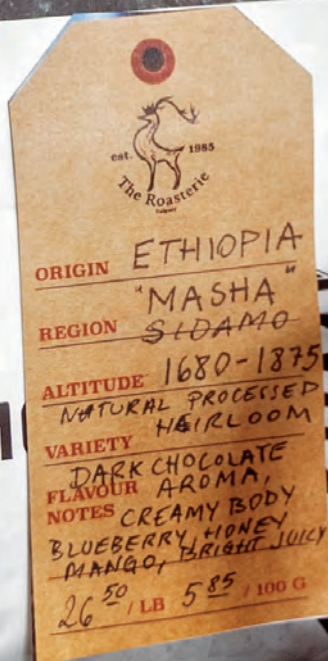 est. 1985
The Roasterie
Calgary
ORIGIN ETHIOPIA
"MASHA"
REGION SIDAMO
ALTITUDE 1680-1875
NATURAL PROCESSED
VARIETY HEIRLOOM
DARK CHOCOLATE
FLAVOUR AROMA,
NOTES CREAMY BODY
BLUEBERRY, HONEY
MANGO, BRIGHT JUICY
26 50 / LB 5 85 / 100 G